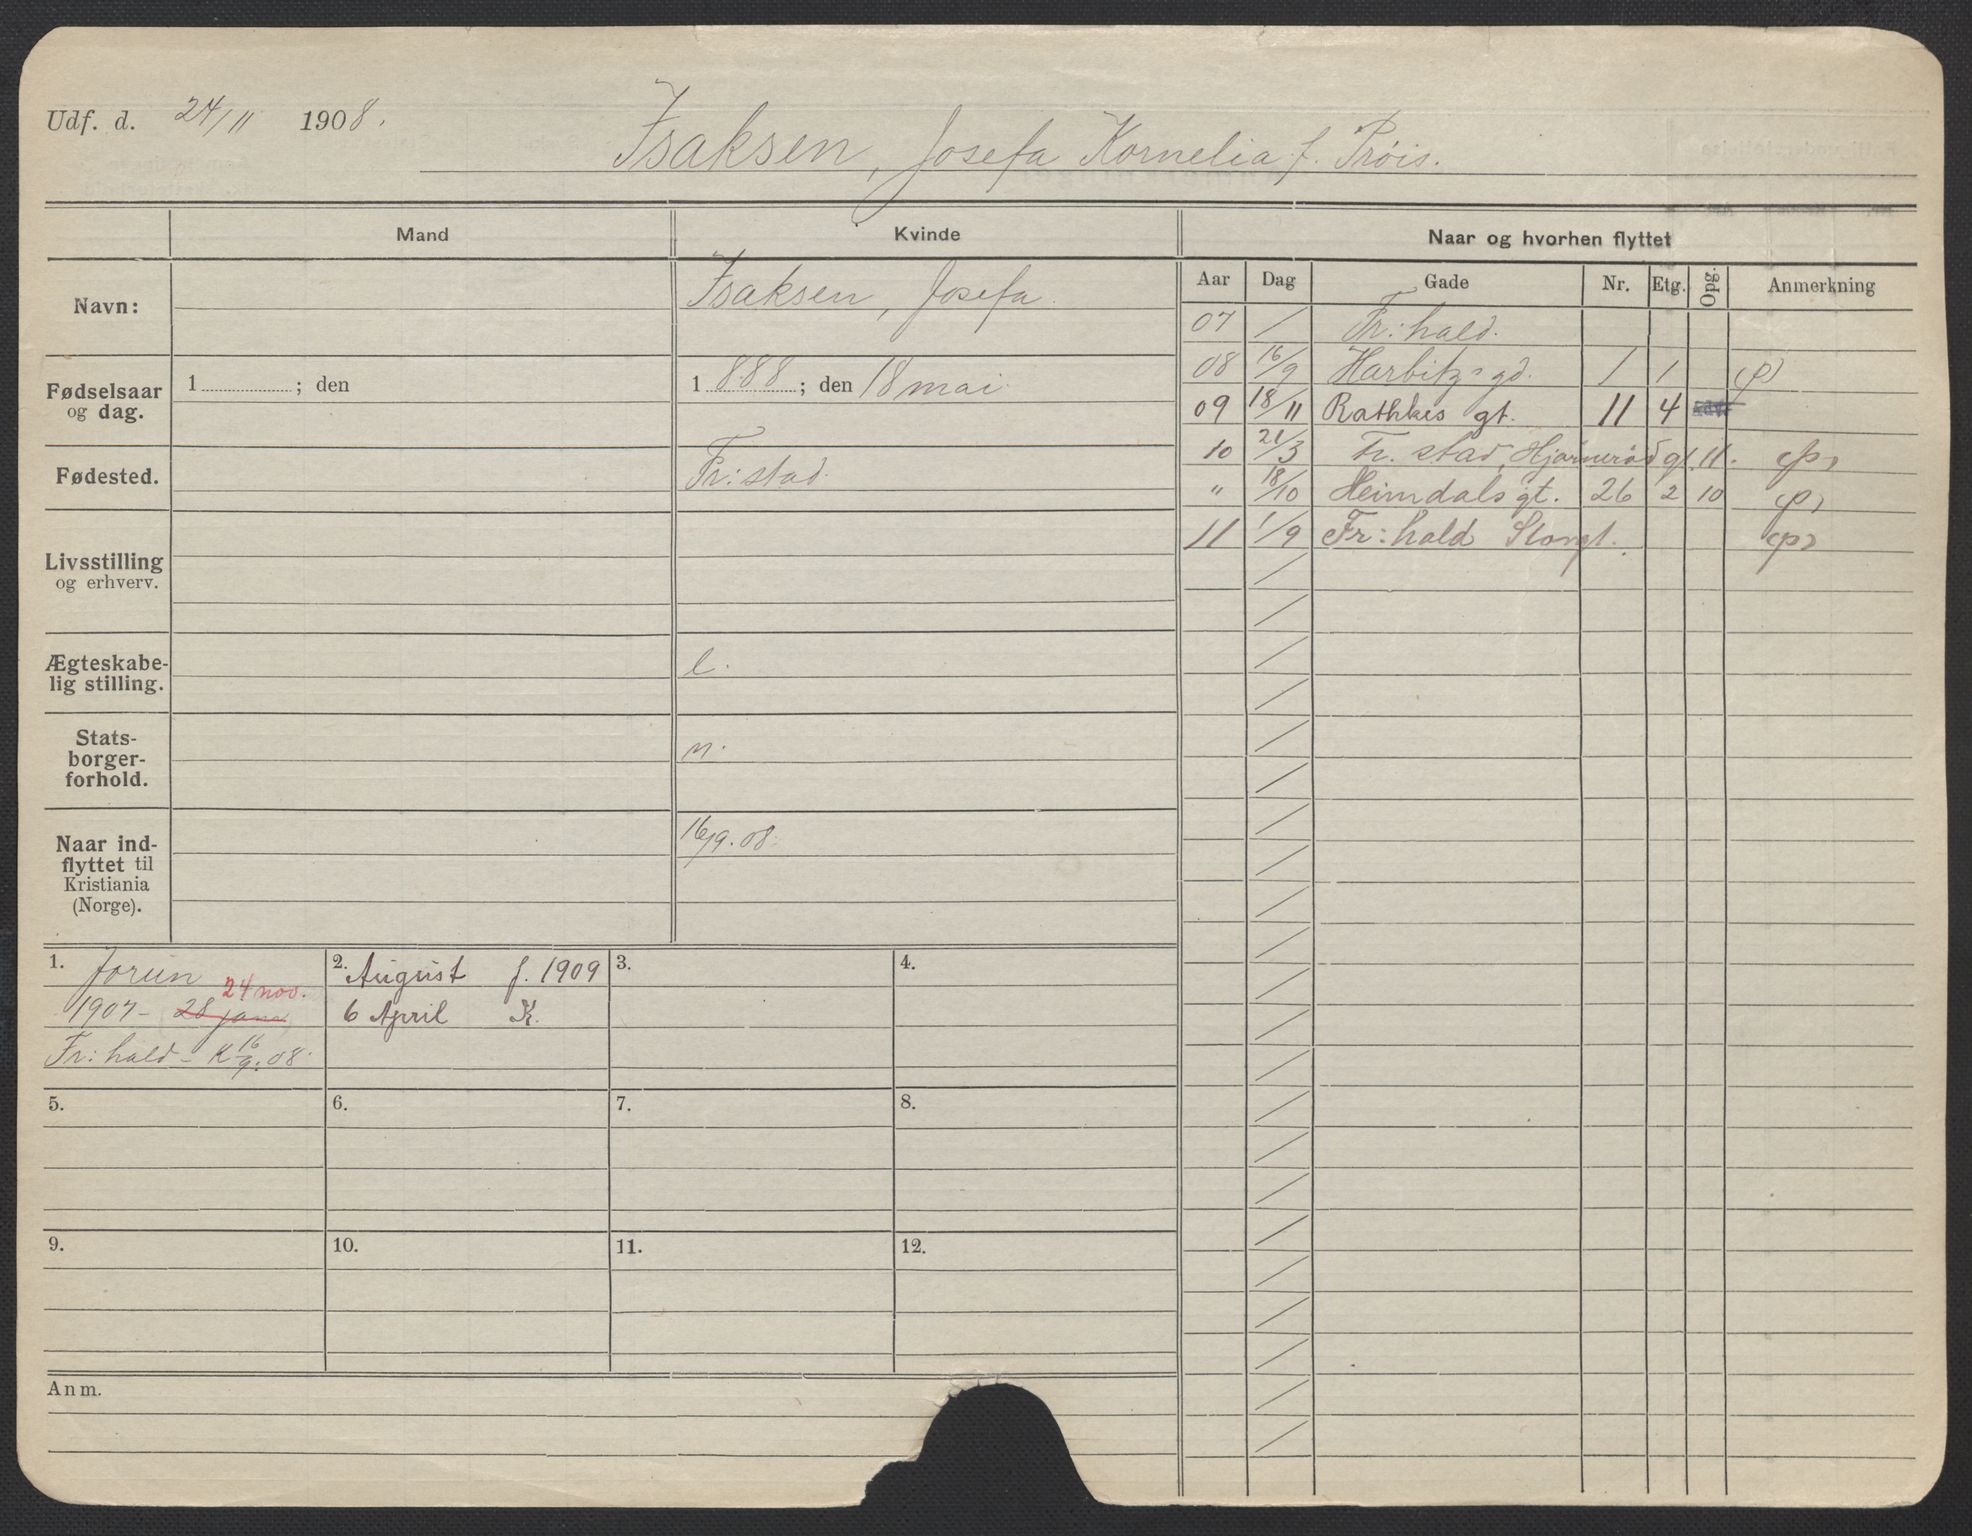 Udf. d. 24/11 1908.
Isaksen, Josefa Kornelia f. Prøis.
Mand
Kvinde
Naar og hvorhen flyttet
Navn:
Isaksen, Josefa.
Fødselsaar og dag.
1 ; den
1 888 ; den 18 mai
Fødested.
Fr:stad.
Livsstilling og erhverv.
Ægteskabe-
lig stilling.
e.
Stats-
borger-
forhold.
n.
Naar ind-
flyttet til
Kristiania
(Norge).
16/9.08.
Aar Dag Gade Nr. Etg. Opg. Anmerkning
07 / Fr:hald.
08 16/9 Harbitz's gd. 1 1 (p)
09 18/11 Rathkes gt. 11 4
10 21/3 Fr.stad, Hjørnerød gt. 11. (p)
" 18/10 Heimdals gt. 26 2 10 (p)
11 1/9 Fr:hald Storgt. (p)
1. Jorun
24 nov.
1907 - 28 jan
Fr:hald - K 16/9.08.
2. August f. 1909
6 April K.
3.
4.
5.
6.
7.
8.
9.
10.
11.
12.
Anm.